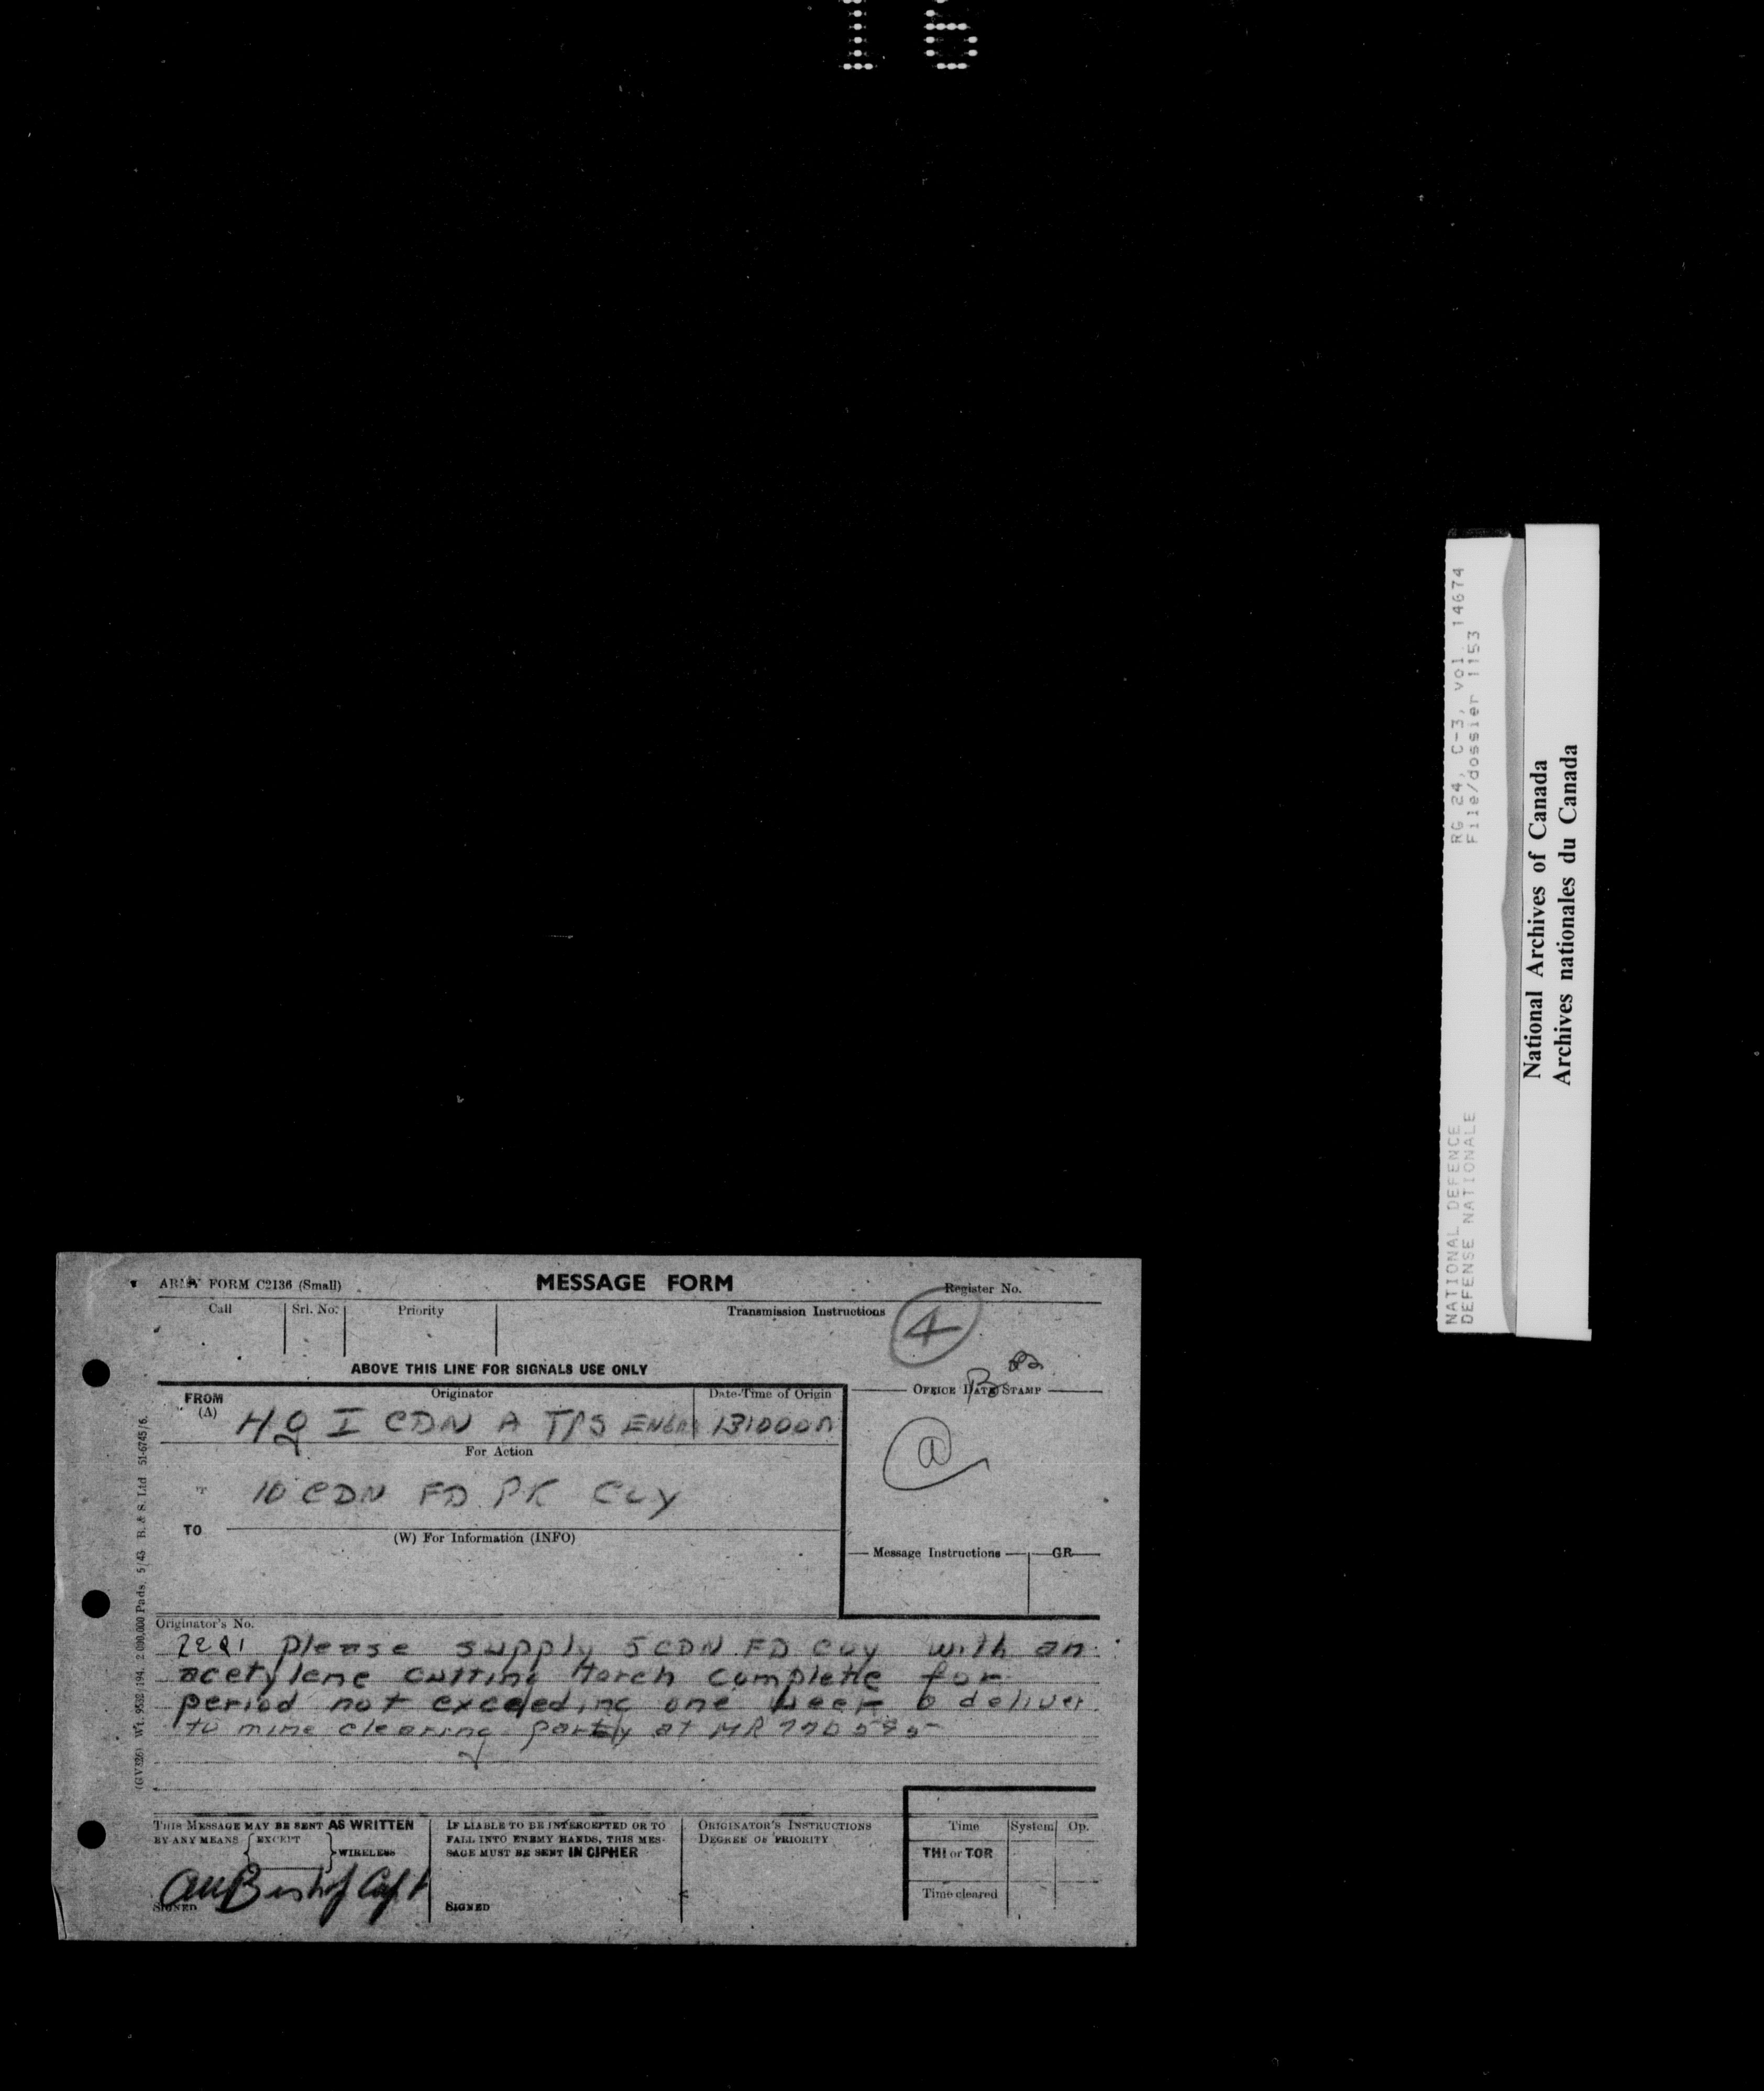 16
RG 24, C-3, vol. 14674
File/dossier 1153
NATIONAL DEFENCE
DEFENSE NATIONALE
National Archives of Canada
Archives nationales du Canada
ARMY FORM C2136 (Small)
MESSAGE FORM
Register No.
Call
Srl. No.
Priority
Transmission Instructions
4
ABOVE THIS LINE FOR SIGNALS USE ONLY
FROM
(A)
Originator
Date-Time of Origin
OFFICE DATE STAMP
HQ I CDN A TPS ENGRS
For Action
10 CDN FD PK COY
TO
(W) For Information (INFO)
Message Instructions
GR
Originator's No.
Please supply 5 CDN FD COY with an
acetylene cutting torch complete for
period not exceeding one week deliver
to mine clearing party at MR
THIS MESSAGE MAY BE SENT AS WRITTEN
BY ANY MEANS { EXCEPT } WIRELESS
Bishop Capt
SIGNED
IF LIABLE TO BE INTERCEPTED OR TO
FALL INTO ENEMY HANDS, THIS MES-
SAGE MUST BE SENT IN CIPHER
SIGNED
ORIGINATOR'S INSTRUCTIONS
DEGREE OF PRIORITY
Time
System
Op.
THI or TOR
Time cleared